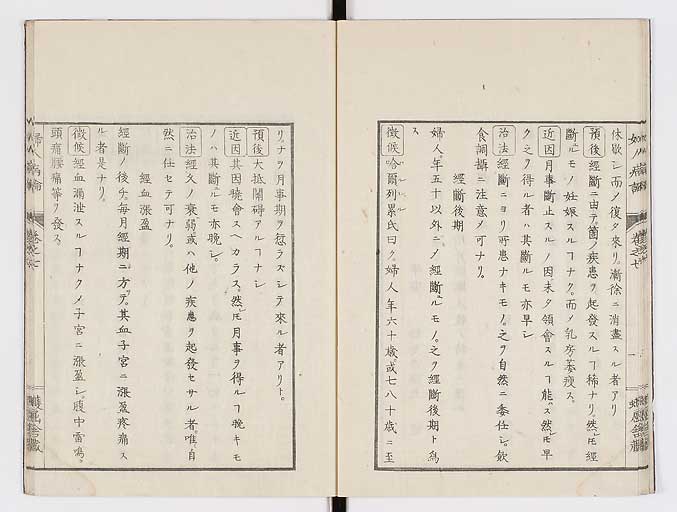 休歇シ而ノ復タ來リ。漸徐ニ消盡スル者アリ
預後 經斷ニ由テ。箇ノ疾患ヲ起發スルヿ稀ナリ。然𪜈經
斷ルモノ妊娠スルヿナク。而ノ乳房萎瘦ス。
近因 月事斷止スルノ因未タ領會スルヿ能ス。然𪜈早
ク之ヲ得ル者ハ其斷ルモ亦早シ
治法 經斷ニヨリ所患ナキモノ。之ヲ自然ニ委任シ。飲
食調攝ニ注意ノ可ナリ。
經斷後期
婦人。年五十以外ニノ經斷ルモノ。之ヲ經斷後期ト爲
ス
徵候 哈爾列累氏曰ク。婦人年六十歳。或七八十歳ニ至
リナヲ月事期ヲ愆ラズシテ來ル者アリト。
預後 大抵關碍アルヿナシ
近因 其因曉會スヘカラス。然𪜈月事ヲ得ルヿ晩キモ
ノハ其斷ルモ亦晩シ。
治法 經久ノ衰弱或ハ他ノ疾患ヲ起發セサル者。唯自
然ニ任セテ可ナリ。
經血漲盈
經斷ノ後チ。每月經期ニ方テ。其血子宮ニ漲盈疼痛ス
ル者是ナリ。
徵候 經血漏泄スルヿナクノ子宮ニ漲盈シ。腹中雷鳴。
頭痛腰痛等ヲ發ス。